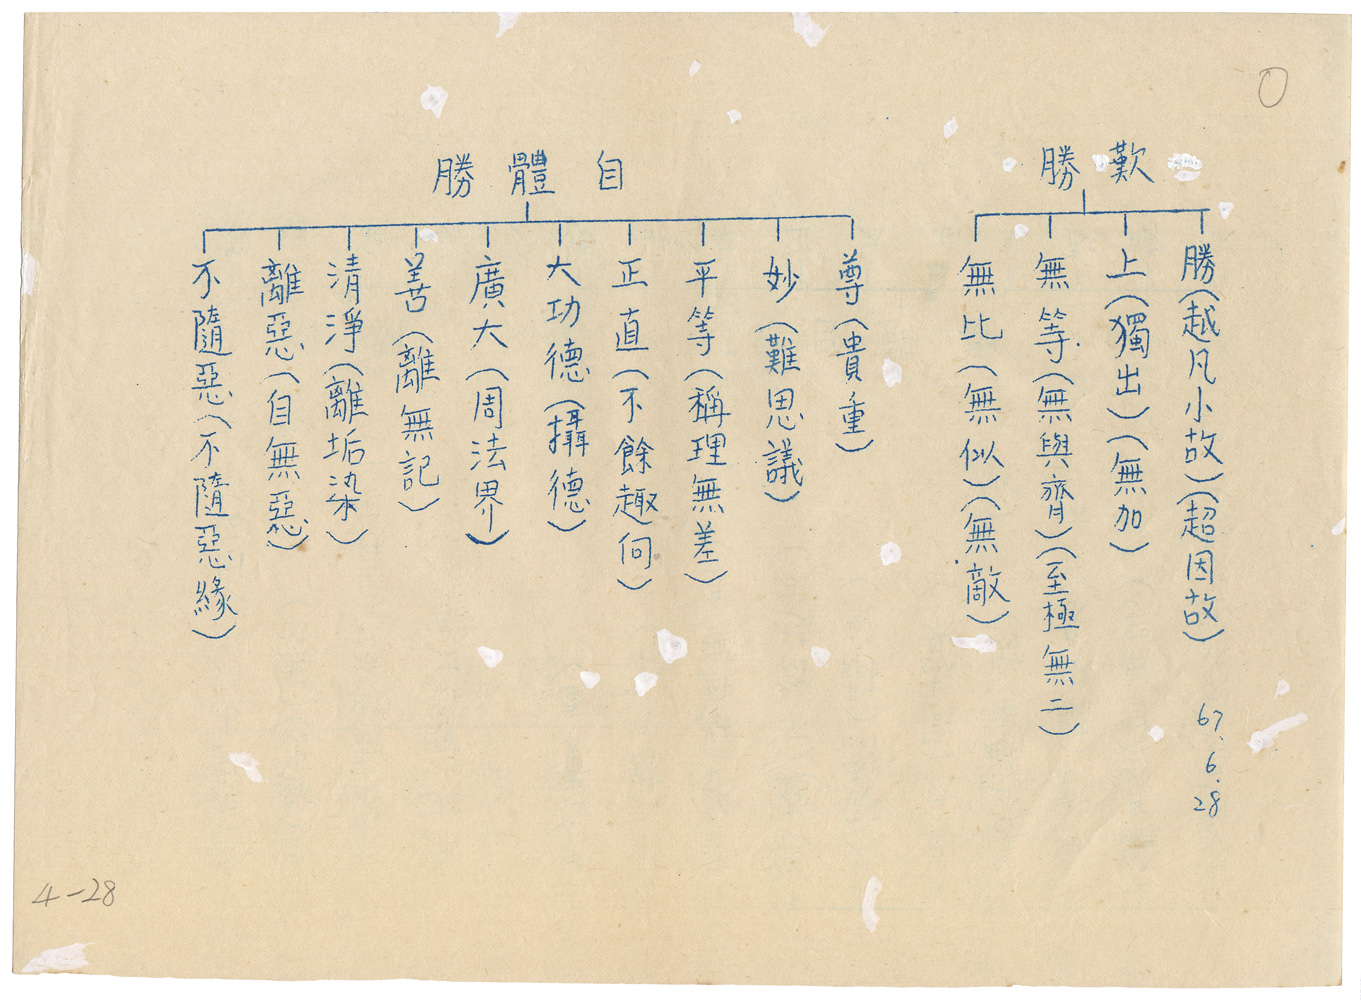 歎勝
勝(越凡小故)(超因故)
上(獨出)(無加)
無等(無與齊)(至極無二)
無比(無似)(無敵)
自體勝
尊(貴重)
妙(難思議)
平等(稱理無差)
正直(不餘趣向)
大功德(攝德)
廣大(周法界)
善(離無記)
清淨(離垢染)
離惡(自無惡)
不隨惡(不隨惡緣)
67.6.28
4-28